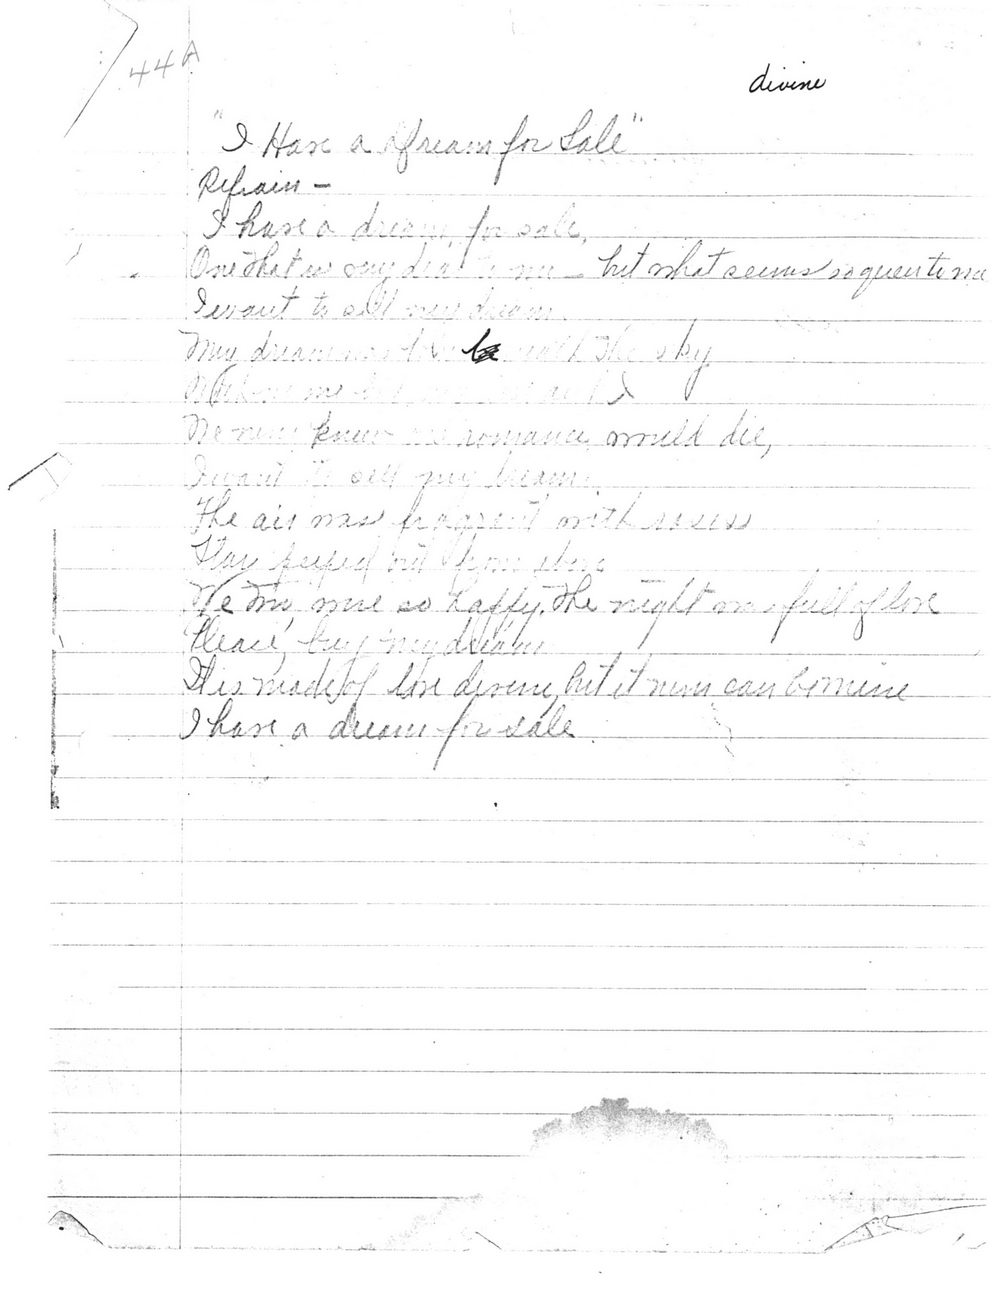 44A
divine
"I Have a Dream for Sale"
Refrain -
I have a dream for sale,
One that is very dear to me - but what seems so queer to me
I want to sell my dream.
My dream was born beneath the sky
and I
We never knew our romance would die,
I want to sell my dream.
The air was fragrant with roses
Stars peeped out from above
We two were so happy, the night was full of love
Please, buy my dream
It is made of love devine, but it never can be mine
I have a dream for sale.